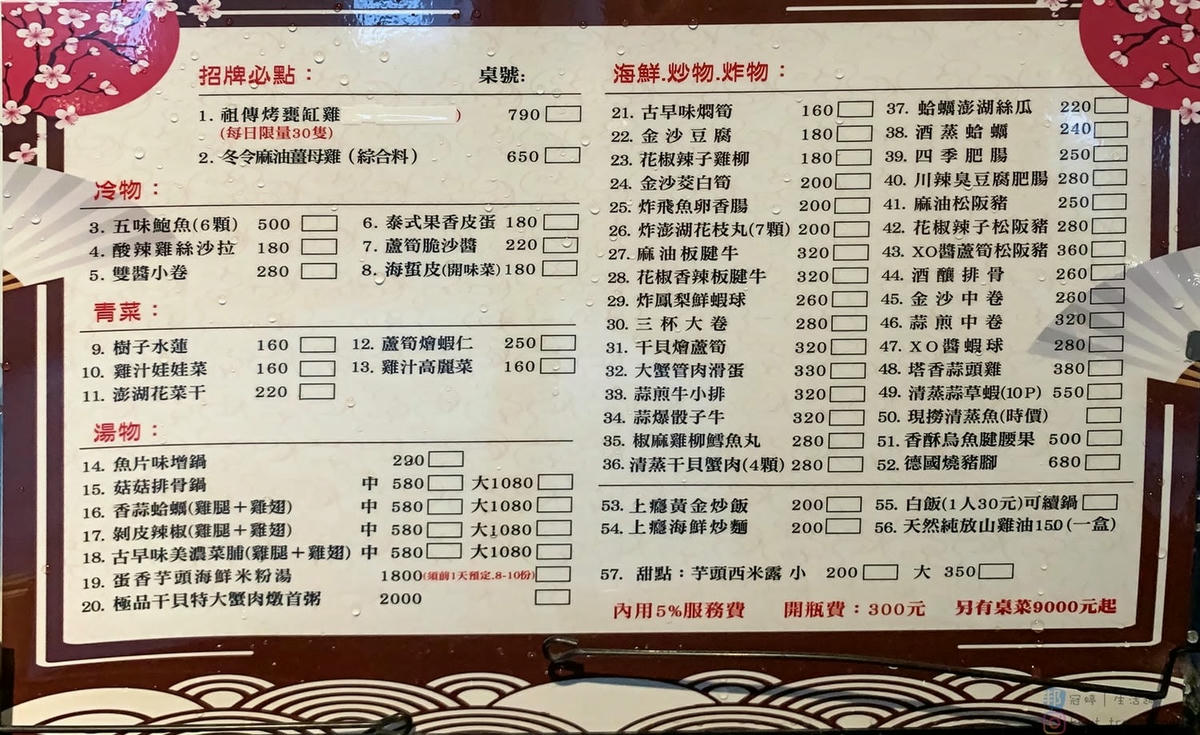 招牌必點：
桌號:
1. 祖傳烤甕缸雞 ) 790
(每日限量30隻)
2. 冬令麻油薑母雞（綜合料） 650
冷物：
3. 五味鮑魚(6顆) 500
4. 酸辣雞絲沙拉 180
5. 雙醬小卷 280
6. 泰式果香皮蛋 180
7. 蘆筍脆沙醬 220
8. 海蜇皮(開味菜) 180
青菜：
9. 樹子水蓮 160
10. 雞汁娃娃菜 160
11. 澎湖花菜干 220
12. 蘆筍燴蝦仁 250
13. 雞汁高麗菜 160
湯物：
14. 魚片味增鍋 290
15. 菇菇排骨鍋 中 580 大1080
16. 香蒜蛤蠣(雞腿＋雞翅) 中 580 大1080
17. 剝皮辣椒(雞腿＋雞翅) 中 580 大1080
18. 古早味美濃菜脯(雞腿＋雞翅) 中 580 大1080
19. 蛋香芋頭海鮮米粉湯 1800(須前1天預定.8-10份)
20. 極品干貝特大蟹肉燉首粥 2000
海鮮.炒物.炸物：
21. 古早味燜筍 160
22. 金沙豆腐 180
23. 花椒辣子雞柳 180
24. 金沙茭白筍 200
25. 炸飛魚卵香腸 200
26. 炸澎湖花枝丸(7顆) 200
27. 麻油板腱牛 320
28. 花椒香辣板腱牛 320
29. 炸鳳梨鮮蝦球 260
30. 三杯大卷 280
31. 干貝燴蘆筍 320
32. 大蟹管肉滑蛋 330
33. 蒜煎牛小排 320
34. 蒜爆骰子牛 320
35. 椒麻雞柳鱈魚丸 280
36. 清蒸干貝蟹肉(4顆) 280
37. 蛤蠣澎湖絲瓜 220
38. 酒蒸蛤蠣 240
39. 四季肥腸 250
40. 川辣臭豆腐肥腸 280
41. 麻油松阪豬 250
42. 花椒辣子松阪豬 280
43. XO醬蘆筍松阪豬 360
44. 酒釀排骨 260
45. 金沙中卷 260
46. 蒜煎中卷 320
47. XO醬蝦球 280
48. 塔香蒜頭雞 380
49. 清蒸蒜草蝦(10P) 550
50. 現撈清蒸魚(時價)
51. 香酥烏魚腱腰果 500
52. 德國燒豬腳 680
53. 上癮黃金炒飯 200
54. 上癮海鮮炒麵 200
55. 白飯(1人30元)可續鍋
56. 天然純放山雞油150(一盒)
57. 甜點：芋頭西米露 小 200 大 350
內用5%服務費 開瓶費：300元 另有桌菜9000元起
冠婷｜生活